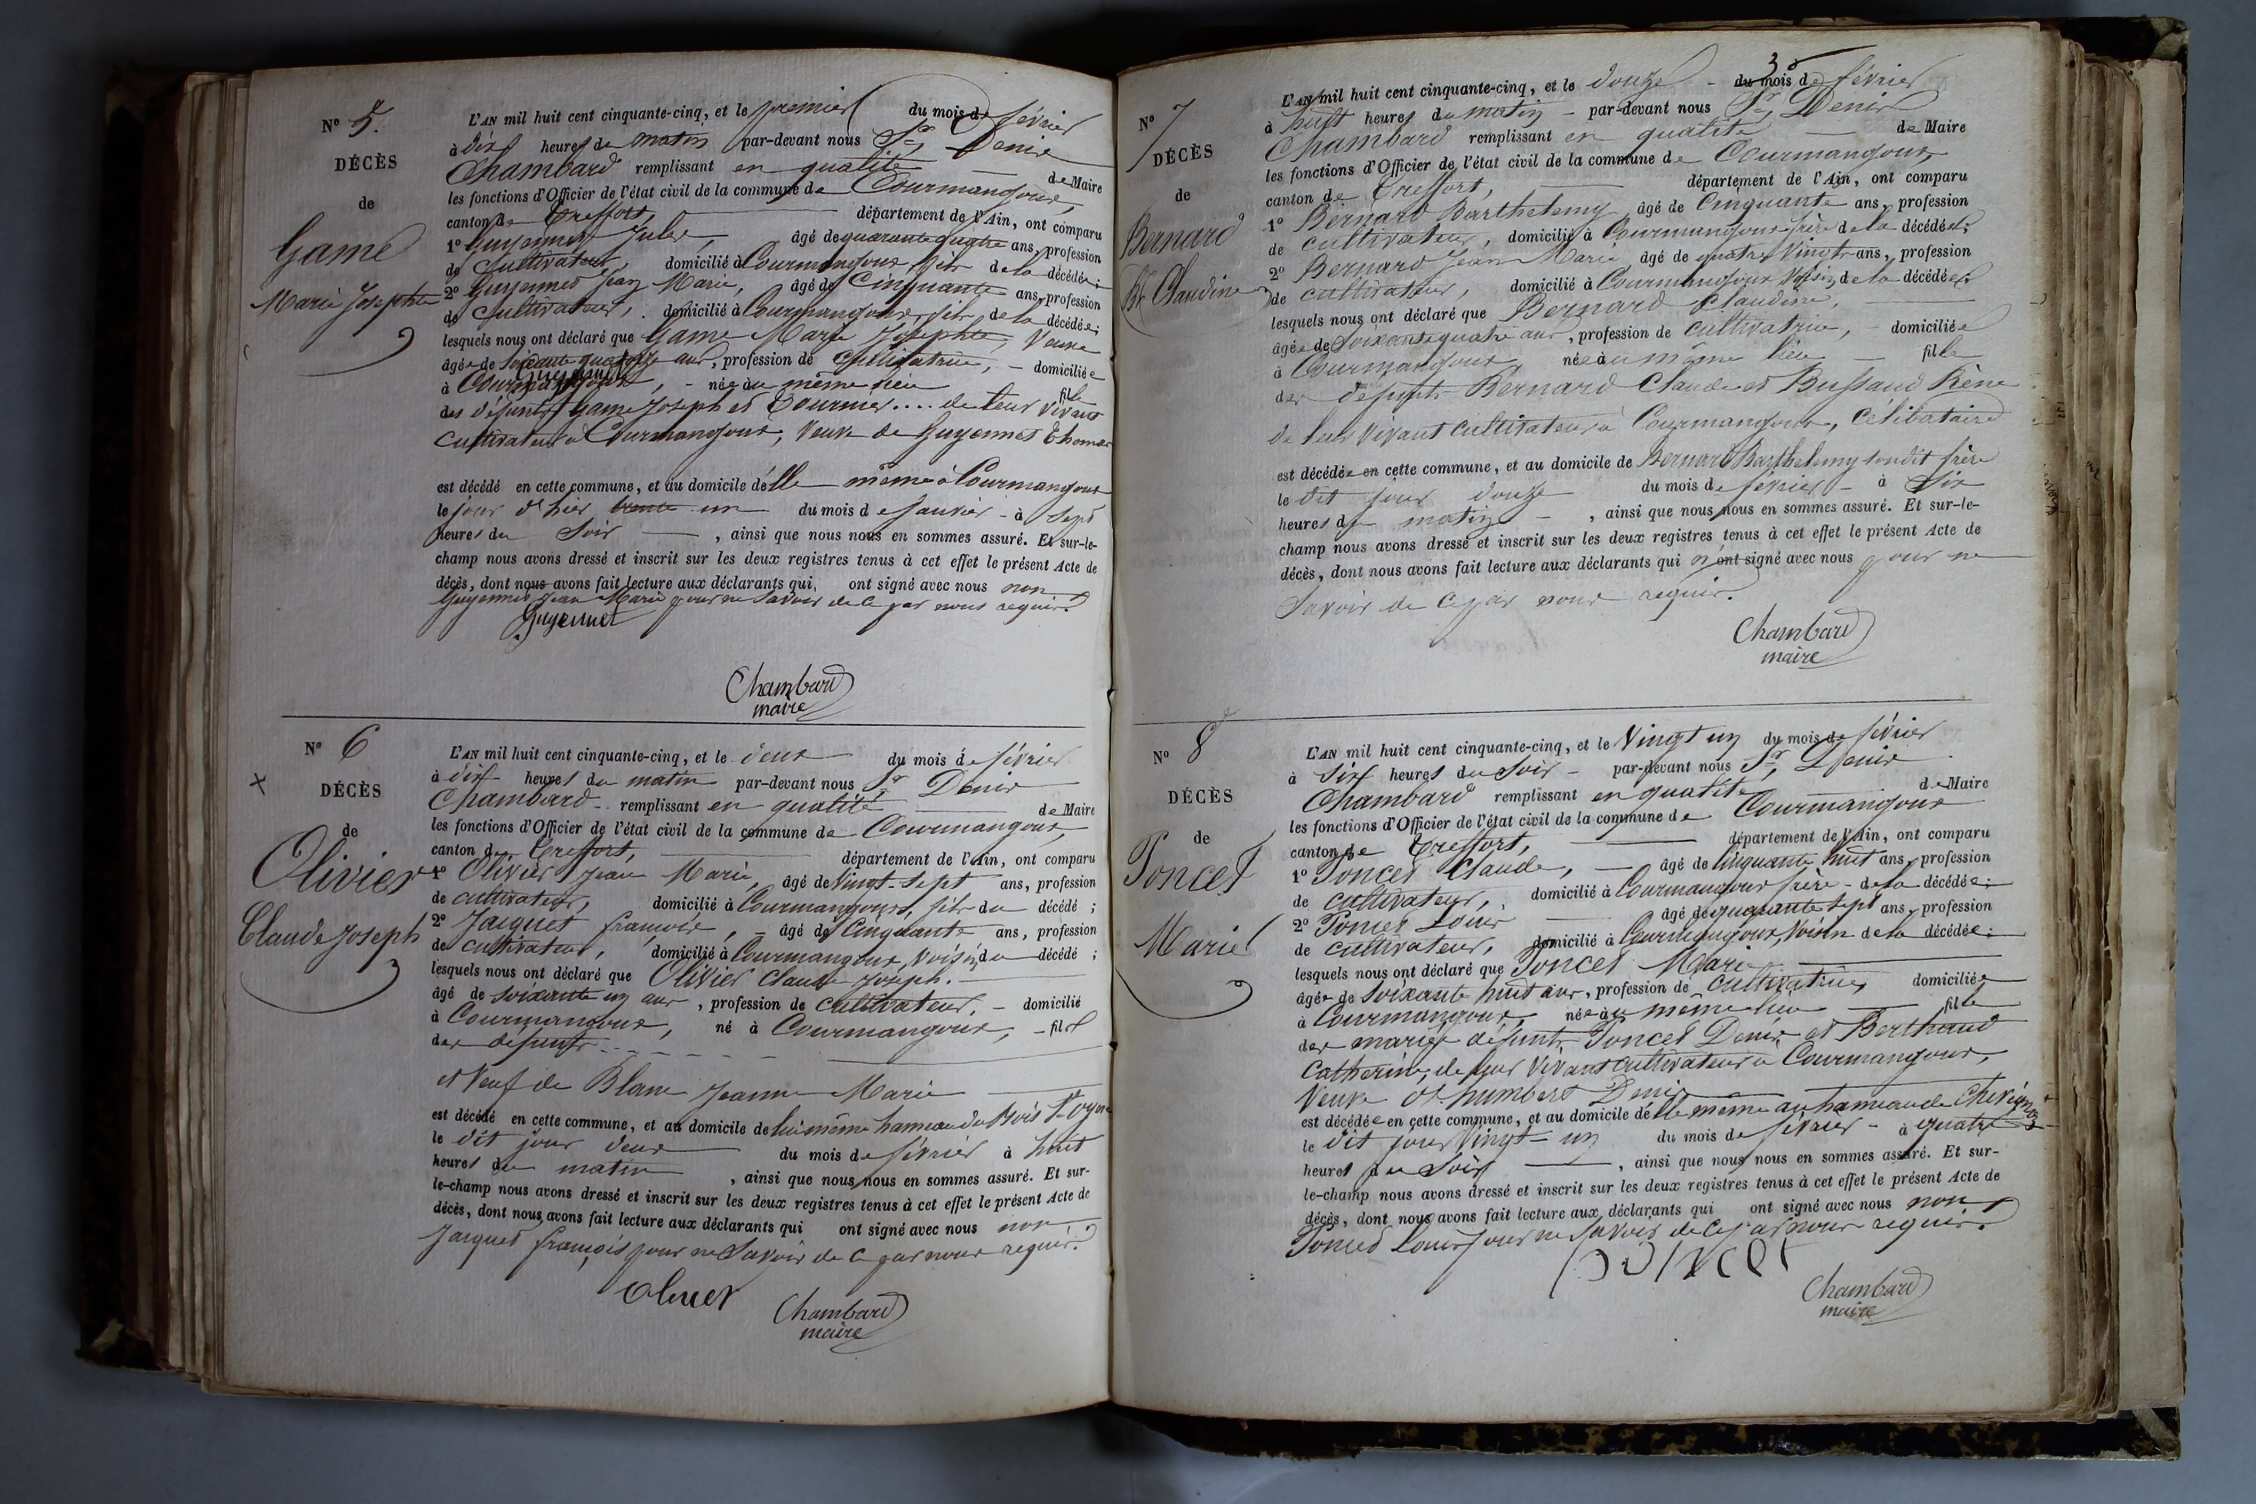 Nº 5.
DÉCÈS
de
Game
Marie Josephte
L'AN mil huit cent cinquante-cinq, et le premier du mois de février
à dix heures du matin par-devant nous Sr Denis
Chambard remplissant en qualité de Maire
les fonctions d'Officier de l'état civil de la commune de Courmangoux,
canton de Treffort, département de l'Ain, ont comparu
1º Guyennet Jules, âgé de quarante quatre ans, profession
de cultivateur, domicilié à Courmangoux, fils de la décédée;
2º Guyennet Jean Marie, âgé de Cinquante ans, profession
de cultivateur, domicilié à Courmangoux, fils de la décédée;
lesquels nous ont déclaré que Game Marie Josephte, Veuve
Guyennet
âgée de soixante quatorze ans, profession de cultivatrice, domiciliée
à Courmangoux, née au même lieu fille
des défunts Game Joseph et Tournier.... de leur vivant
cultivateur à Courmangoux, Veuve de Guyennet Thomas
est décédé en cette commune, et au domicile d'elle même à Courmangoux
le jour d'hier trente un du mois de Janvier à sept
heures du Soir, ainsi que nous nous en sommes assuré. Et sur-le-
champ nous avons dressé et inscrit sur les deux registres tenus à cet effet le présent Acte de
décès, dont nous avons fait lecture aux déclarants qui ont signé avec nous non
Guyennet Jean Marie pour ne savoir de ce par nous requis.
Guyennet
Chambard
maire
Nº 6
DÉCÈS
de
Olivier
Claude Joseph
L'AN mil huit cent cinquante-cinq, et le deux du mois de février
à dix heures du matin par-devant nous Sr Denis
Chambard remplissant en qualité de Maire
les fonctions d'Officier de l'état civil de la commune de Courmangoux,
canton de Treffort, département de l'Ain, ont comparu
1º Olivier Jean Marie, âgé de vingt-sept ans, profession
de cultivateur, domicilié à Courmangoux, fils du décédé;
2º Jacquet françois, âgé de Cinquante ans, profession
de cultivateur, domicilié à Courmangoux, voisin du décédé;
lesquels nous ont déclaré que Olivier Claude Joseph.
âgé de soixante un ans, profession de cultivateur, domicilié
à Courmangoux, né à Courmangoux, fils
des défunts
et veuf de Blanc Jeanne Marie
est décédé en cette commune, et au domicile de lui même hameau du Bois
le dit jour deux du mois de février à huit
heures du matin, ainsi que nous nous en sommes assuré. Et sur-
le-champ nous avons dressé et inscrit sur les deux registres tenus à cet effet le présent Acte de
décès, dont nous avons fait lecture aux déclarants qui ont signé avec nous non
Jacquet françois pour ne savoir de ce par nous requis.
olivier
Chambard
maire
3
Nº 7
DÉCÈS
de
Bernard
Claudine
L'AN mil huit cent cinquante-cinq, et le douze du mois de février
à huit heures du matin par-devant nous Sr Denis
Chambard remplissant en qualité de Maire
les fonctions d'Officier de l'état civil de la commune de Courmangoux,
canton de Treffort, département de l'Ain, ont comparu
1º Bernard Barthelemy âgé de Cinquante ans, profession
de cultivateur, domicilié à Courmangoux frère de la décédée;
2º Bernard Jean Marie âgé de quatre Vingts ans, profession
de cultivateur, domicilié à Courmangoux voisin de la décédée;
lesquels nous ont déclaré que Bernard Claudine,
âgée de Soixante quatre ans, profession de cultivatrice, domiciliée
à Courmangoux, née au même lieu fille
des défunts Bernard Claude et Bussaud Rène
de leur vivant cultivateurs à Courmangoux, célibataire
est décédée en cette commune, et au domicile de Bernard Barthelemy son dit frère
le dit jour douze du mois de février à Six
heures du matin, ainsi que nous nous en sommes assuré. Et sur-le-
champ nous avons dressé et inscrit sur les deux registres tenus à cet effet le présent Acte de
décès, dont nous avons fait lecture aux déclarants qui n'ont signé avec nous pour ne
savoir de ce par nous requis.
Chambard
maire
Nº 8
DÉCÈS
de
Poncet
Marie
L'AN mil huit cent cinquante-cinq, et le Vingt un du mois de février
à Six heures du Soir par-devant nous Sr Denis
Chambard remplissant en qualité de Maire
les fonctions d'Officier de l'état civil de la commune de Courmangoux
canton de Treffort, département de l'Ain, ont comparu
1º Poncet Claude, âgé de Cinquante huit ans, profession
de cultivateur, domicilié à Courmangoux frère de la décédée;
2º Poncet Louis âgé de quarante sept ans, profession
de cultivateur, domicilié à Courmangoux, Voisin de la décédée;
lesquels nous ont déclaré que Poncet Marie
âgée de soixante huit ans, profession de cultivatrice, domiciliée
à Courmangoux, née au même lieu fille
des mariés défunts Poncet Denis et Berthaud
Catherine, de leur Vivant cultivateurs à Courmangoux,
Veuve d'humbert Denis
est décédée en cette commune, et au domicile d'elle même au hameau de
le dit jour Vingt-un du mois de février à quatre
heures du Soir, ainsi que nous nous en sommes assuré. Et sur-
le-champ nous avons dressé et inscrit sur les deux registres tenus à cet effet le présent Acte de
décès, dont nous avons fait lecture aux déclarants qui ont signé avec nous non
Poncet Louis pour ne savoir de ce par nous requis.
poncet
Chambard
maire